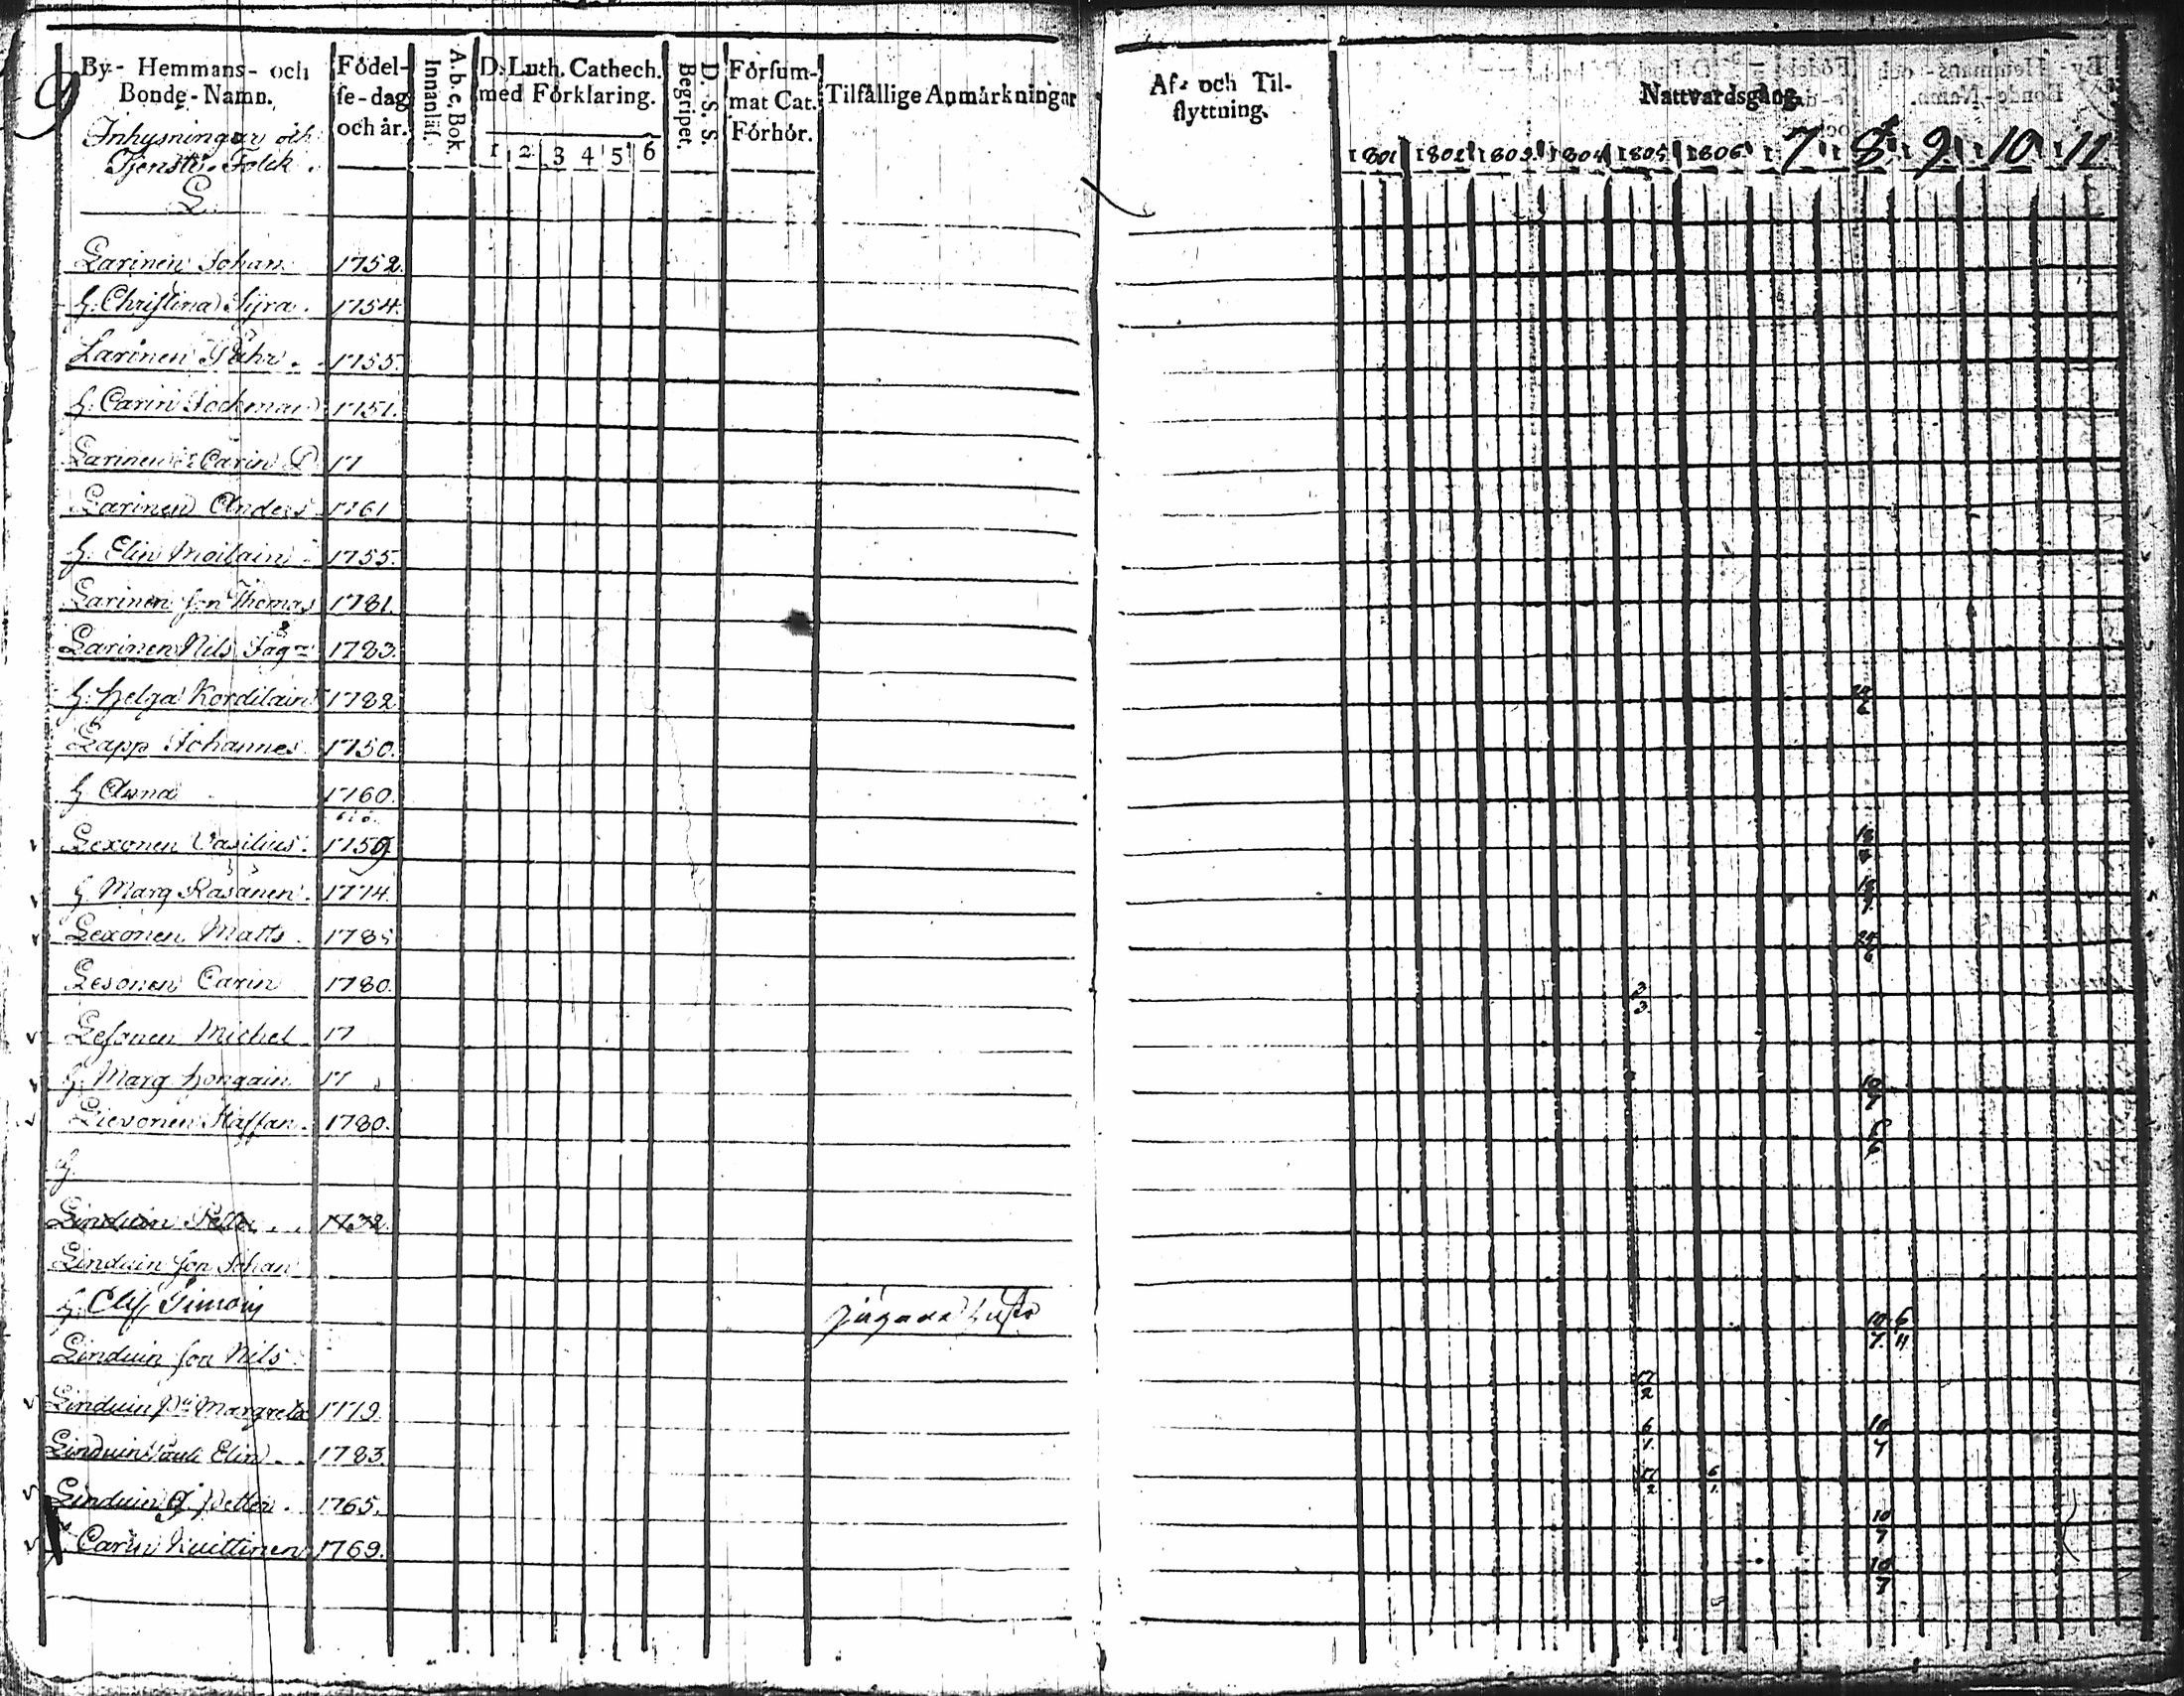 9
By- Hemmans- och
Bonde-Namn.
Inhysningar och
Tjenste-Folck.
L.
Födel-
se-dag
och år.
A.b.c.Bok
Innanläs.
D. Luth. Cathech.
med Förklaring.
1 2 3 4 5 6
D. S. S.
Begripet.
Försum-
mat Cat.
Förhör.
Tilfällige Anmärkningar
Af- och Til-
flyttning.
Nattvardsgång.
1801 1802 1803 1804 1805 1806 7 8 9 10 11
Larinen Johan 1752.
H. Christina Syra. 1754.
Larinen Påhr. 1755.
H. Carin 1751.
Larinen Carin 17
Larinen Anders 1761
H. Elin Moilain 1755.
Larinen son Thomas 1781.
Larinen Nils 1783.
H. Helga Kordilain 1782 24 6
Lapp Johannes 1750.
H Anna 1760.
Lexonen Vasilius. 1759
H Marg Räsänen. 1774.
Lexonen Matts 178 24 6
Lesonen Carin 1780. 3 3
Lesonen Michel 17
H. Marg Hongain 17 10 7
Lievonen Staffan. 1780. 6
H.
Linduin Petter 1732.
Linduin son Johan
H. Simoin 10 7. 6 11
Linduin son Nils
Linduin Margreta 1779. 17 2
Linduin Elin 1783. 6 1. 10 7
Linduin Petter. 1765. 17 2 6 1.
Carin Kuittinen 1769. 10 7
10 7